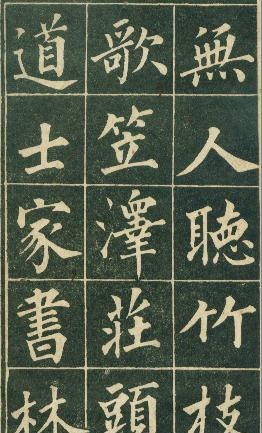 無人聴竹枝
歌笠澤莊頭
道士家書林